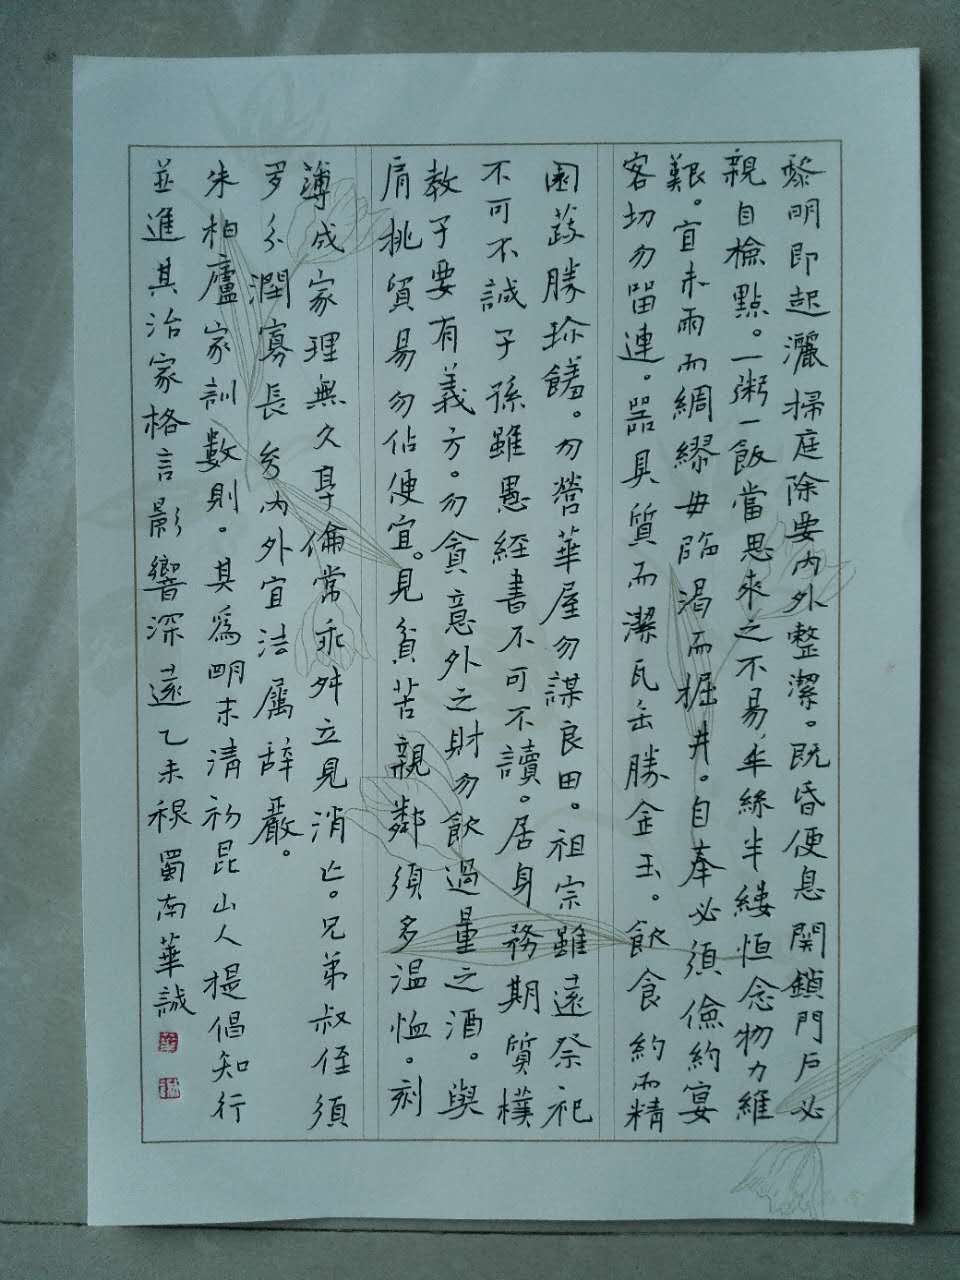 黎明即起灑掃庭除要内外整潔。既昏便息關鎖門戶必
親自檢點。一粥一飯當思來之不易，半絲半縷恒念物力維
艱。宜未雨而綢繆毋臨渴而掘井。自奉必須儉約宴
客切勿留連。器具質而潔瓦缶勝金玉。飲食約而精
園蔬勝珍饈。勿營華屋勿謀良田。祖宗雖遠祭祀
不可不誠子孫雖愚經書不可不讀。居身務期質樸
教子要有義方。勿貪意外之財勿飲過量之酒。與
肩挑貿易勿佔便宜。見貧苦親鄰須多温恤。刻
薄成家理無久享倫常乖舛立見消亡。兄弟叔侄須
多分潤寡長幼内外宜法屬辞嚴。
朱柏廬家訓數則。其爲明末清初昆山人提倡知行
並進其治家格言影響深遠乙未穐蜀南華誠
華
誠